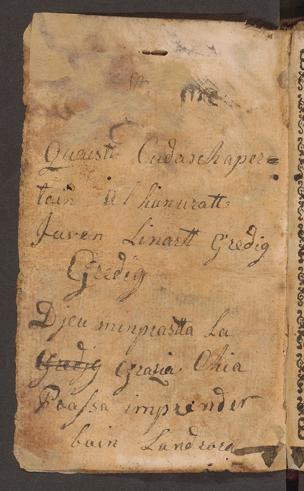 Quaist Cudasch aper=
tain Al hunuratt
Juven Linartt Gredig
Gredig
Djeu minprastta La
Gredig Grazia Chia
Poassa imprender
bain Landrora